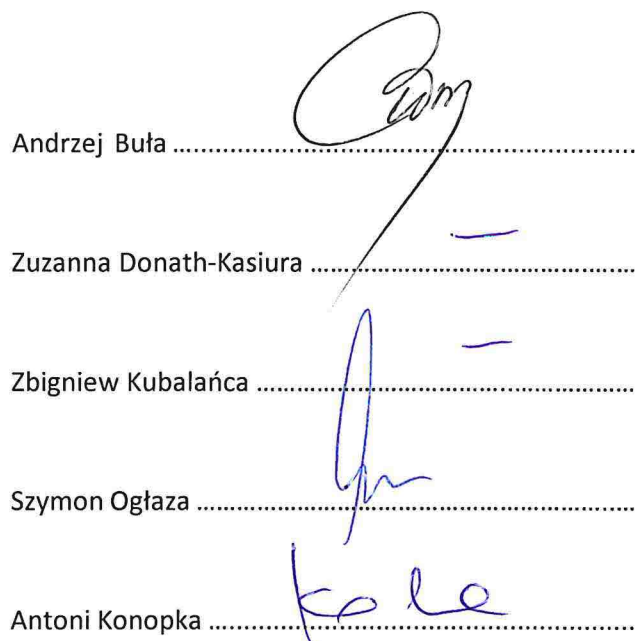 Andrzej Buła ..........................................................................
Zuzanna Donath-Kasiura ....................................................
—
Zbigniew Kubalańca ............................................................
—
Szymon Ogłaza ......................................................................
Antoni Konopka ....................................................................